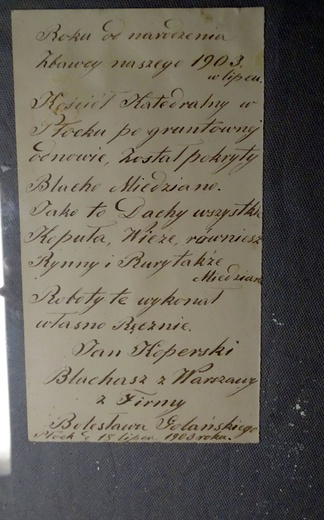 Roku od narodzenia
Zbawcy naszego 1903.
w lipcu.
Kościół Katedralny w
Płocku po gruntownej
odnowie, Został pokryty
Blachо Miedziano.
Jako to Dachy wszystkie
Kopuła, Wieże, również
Rynny i Rury także
Miedziane
Roboty te wykonał
własno Ręcznie.
Jan Koperski
Blachasz z Warszawy
z Firmy
Bolesława Golańskiego
Płock d. 15 lipca 1903 roku.